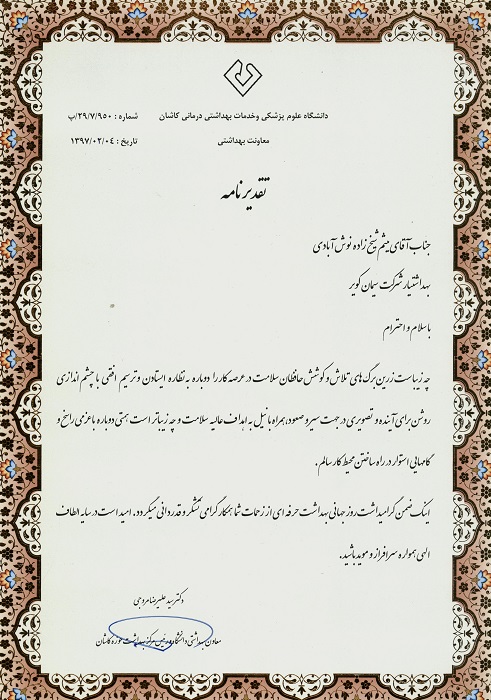 دانشگاه علوم پزشکی وخدمات بهداشتی درمانی کاشان
معاونت بهداشتی
شماره : ۲۹/۷/۹۵۰/پ
تاریخ : ۱۳۹۷/۰۲/۰۴
تقدیرنامه
جناب آقای میثم شیخ زاده نوش آبادی
بهداشتیار شرکت سیمان کویر
با سلام و احترام
چه زیباست زرین برگ های تلاش و کوشش حافظان سلامت در عرصه کار را دوباره به نظاره ایستادن و ترسیم افقی با چشم اندازی
روشن برای آینده و تصویری در جهت سیر و صعود، همراه با نیل به اهداف عالیه سلامت و چه زیباتر است همتی دوباره با عزمی راسخ و
گامهایی استوار در راه ساختن محیط کار سالم.
اینک ضمن گرامیداشت روز جهانی بهداشت حرفه ای از زحمات شما همکار گرامی تشکر و قدردانی میگردد. امید است در سایه الطاف
الهی همواره سرافراز و موید باشید.
دکتر سید علیرضا مروجی
معاون بهداشتی دانشگاه و رئیس مرکز بهداشت حوزه کاشان